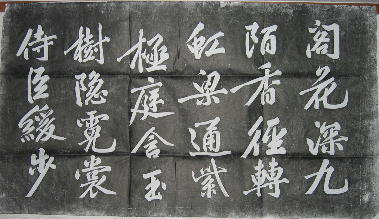 阁花深九
陌香径轉
虹梁通紫
極庭含玉
樹隐霓裳
侍臣緩步